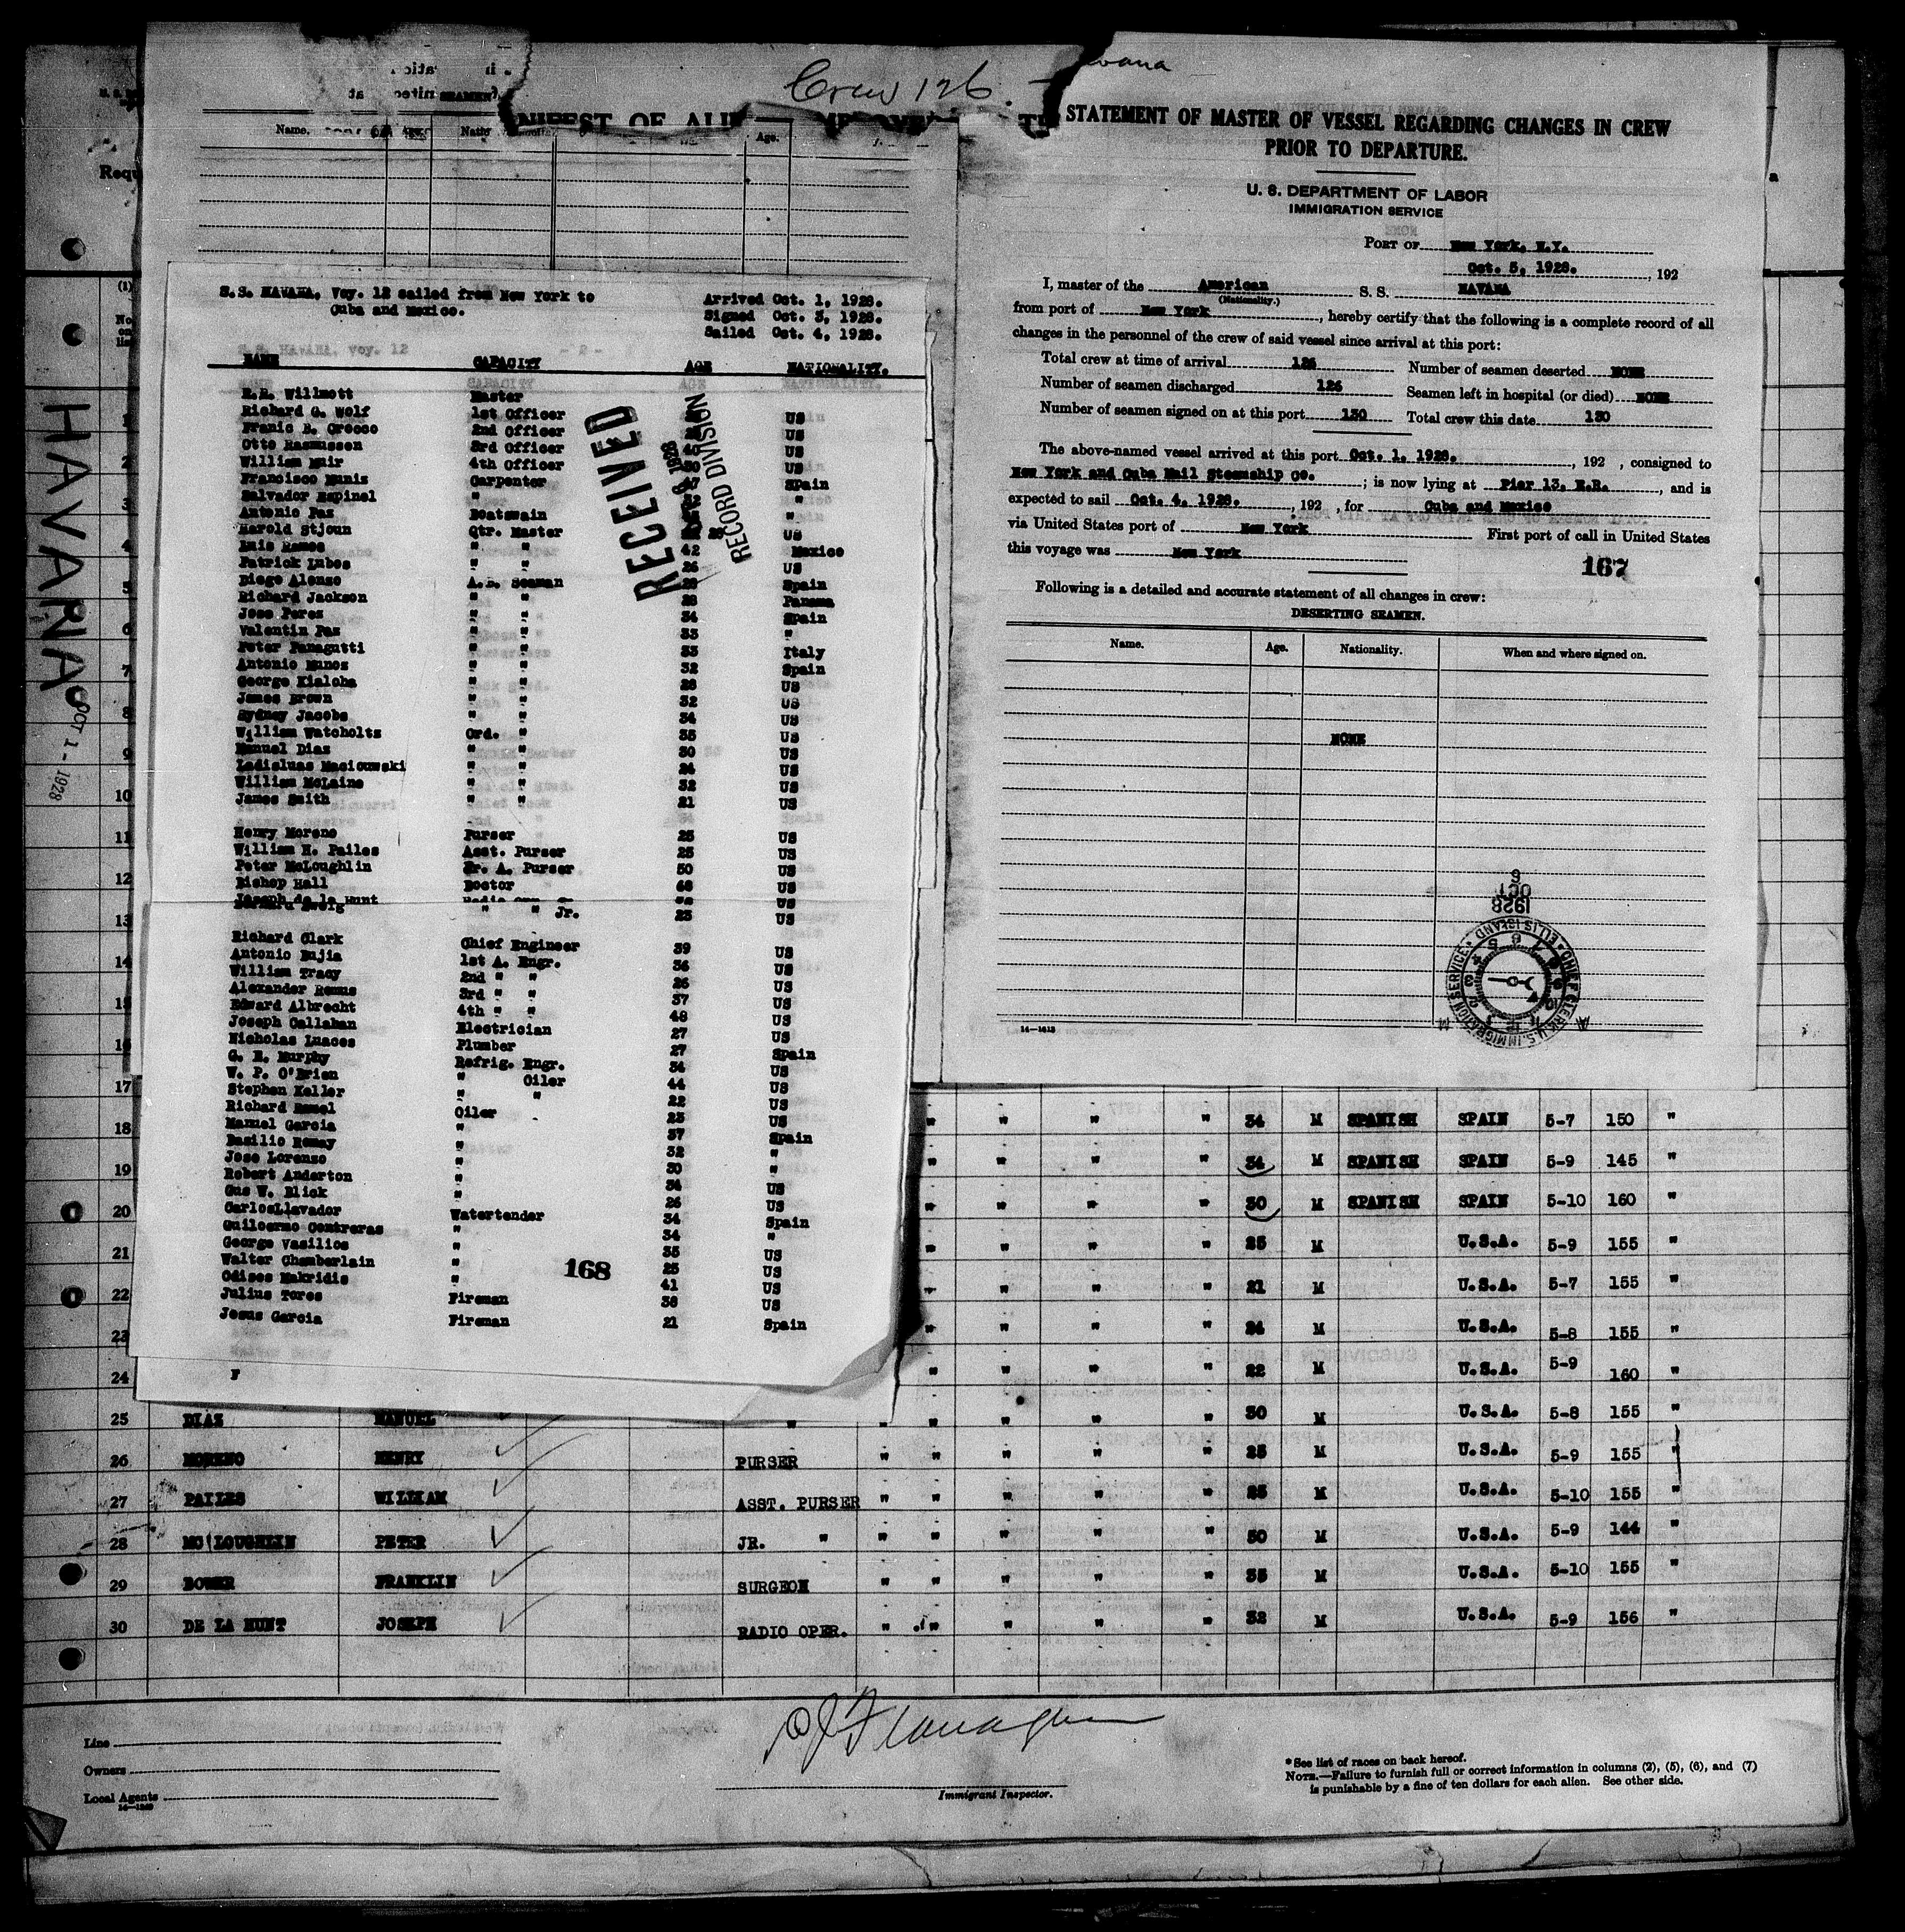 Crew 126.
HAVANA
OCT 1 - 1928
Name.
Age.
S.S. HAVANA. Voy. 12 sailed from New York to
Cuba and Mexico.
Arrived Oct. 1, 1928.
Signed Oct. 3, 1928.
Sailed Oct. 4, 1928.
NAME CAPACITY AGE NATIONALITY.
RECEIVED
RECORD DIVISION
Willmott Master
Richard G. Wolf 1st Officer US
2nd Officer US
Otto Rasmussen 3rd Officer 40 US
William Muir 4th Officer US
Francisco Munis Carpenter Spain
Salvador Espinel " "
Antonio Paz Boatswain "
Harold Stjoun Qtr. Master US
Luis Ramos " " 42 Mexico
Patrick Lubes " " 26 US
Diego Alonzo A.B. Seaman Spain
Richard Jackson " " 28 Panama
Jose Perez " " 34 Spain
Valentin Paz " " 33 "
Peter Panagutti " " 33 Italy
Antonio Munos " " 32 Spain
George Kialoha " " 28 US
James Brown " " 32 US
Sydney Jacobs " " 34 US
William Watcholts Ord. " 35 US
Manuel Diaz " " 30 US
Ladisluas Maciouwski " " 24 US
William McLaine " " 32 US
James Smith " " 21 US
Henry Moreno Purser 25 US
William H. Pailes Asst. Purser 25 US
Peter McLoughlin Jr. A. Purser 50 US
Bishop Hall Doctor 68 US
Joseph de la Hunt US
" " Jr. 23 US
Richard Clark Chief Engineer 39 US
Antonio Bujia 1st A. Engr. 36 US
William Tracy 2nd " " 26 US
Alexander Remus 3rd " " 37 US
Edward Albrecht 4th " " 48 US
Joseph Callahan Electrician 27 US
Nicholas Luaces Plumber 27 Spain
G. H. Murphy Refrig. Engr. 34 US
W. P. O'Brien " Oiler 44 US
Stephen Keller " " 22 US
Richard Hamel Oiler 23 US
Manuel Garcia " 37 Spain
Basilio Remay " 32 "
Jose Lorenzo " 30 "
Robert Anderton " 34 US
Gus W. Blick " 26 US
CarlosLlavador Watertender 34 Spain
Guiloermo Contreras " 34 "
George Vasilios " 35 US
Walter Chamberlain " 25 US
Odises Makridis " 41 US
Julius Tores Fireman 38 US
Jesus Garcia Fireman 21 Spain
168
STATEMENT OF MASTER OF VESSEL REGARDING CHANGES IN CREW
PRIOR TO DEPARTURE.
U. S. DEPARTMENT OF LABOR
IMMIGRATION SERVICE
PORT OF New York, N.Y.
Oct. 5, 1928. , 192
I, master of the American S. S. HAVANA
(Nationality.)
from port of New York , hereby certify that the following is a complete record of all
changes in the personnel of the crew of said vessel since arrival at this port:
Total crew at time of arrival 126 Number of seamen deserted NONE
Number of seamen discharged 126 Seamen left in hospital (or died) NONE
Number of seamen signed on at this port 130 Total crew this date 130
The above-named vessel arrived at this port Oct. 1, 1928. , 192 , consigned to
New York and Cuba Mail Steamship Co. ; is now lying at Pier 13, E.R. , and is
expected to sail Oct. 4, 1928. , 192 , for Cuba and Mexico
via United States port of New York First port of call in United States
this voyage was New York
167
Following is a detailed and accurate statement of all changes in crew:
DESERTING SEAMEN.
Name. Age. Nationality. When and where signed on.
NONE
1928
OCT
6
CHIEF CLERK U.S. IMMIGRATION SERVICE • ELLIS ISLAND •
14—1413
18 " " " " 34 M SPANISH SPAIN 5-7 150 "
19 " " " " 34 M SPANISH SPAIN 5-9 145 "
20 " " " " 30 M SPANISH SPAIN 5-10 160 "
21 " " " " 25 M U.S.A. 5-9 155 "
22 " " " " 21 M U.S.A. 5-7 155 "
23 " " " " 24 M U.S.A. 5-8 155 "
24 F " " " " 22 M U.S.A. 5-9 160 "
25 DIAZ MANUEL " " " " " " 30 M U.S.A. 5-8 155 "
26 MORENO HENRY PURSER " " " " " 25 M U.S.A. 5-9 155 "
27 PAILES WILLIAM ASST. PURSER " " " " " 25 M U.S.A. 5-10 155 "
28 MC LOUGHLIN PETER JR. " " " " " " 50 M U.S.A. 5-9 144 "
29 BOWER FRANKLIN SURGEON " " " " " 35 M U.S.A. 5-10 155 "
30 DE LA HUNT JOSEPH RADIO OPER. " " " " " 32 M U.S.A. 5-9 156 "
Line
Owners
Local Agents
Flanagan
Immigrant Inspector.
* See list of races on back hereof.
NOTE.—Failure to furnish full or correct information in columns (2), (5), (6), and (7)
is punishable by a fine of ten dollars for each alien. See other side.